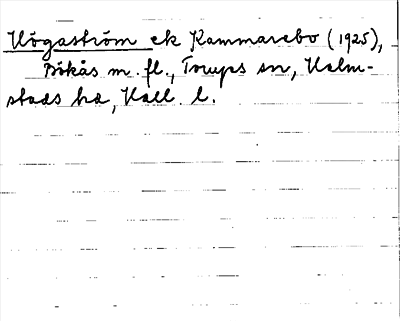 Högaström ek Kammarebo (1925),
Bökås m. fl., Torups sn, Halm-
stads hd, Hall. l.